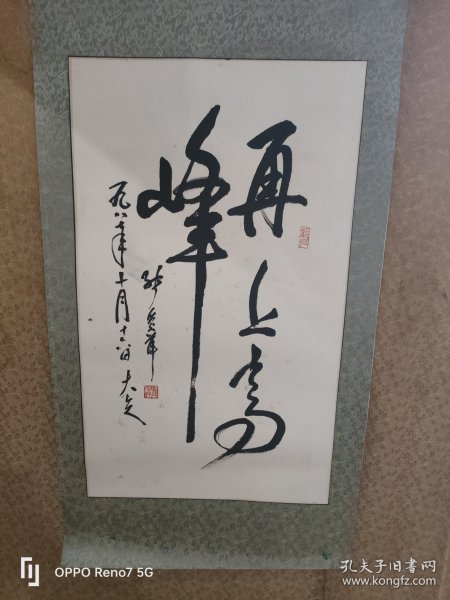 再上高
峰
一九八七年十月十六日 大定
OPPO Reno7 5G
孔夫子旧书网
www.kongfz.com